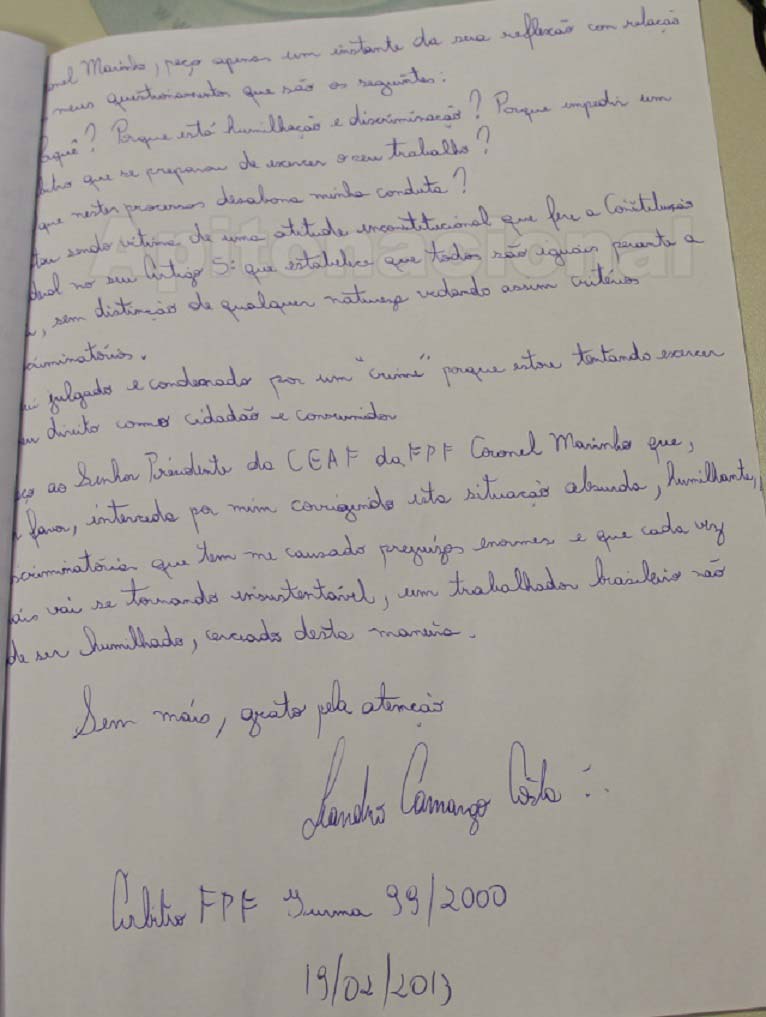 onel Marinho, peço apenas um instante da sua reflexão com relação
meus questionamentos que são os seguintes:
Porque está humilhação e discriminação? Porque impedir um
bitro que se preparou de exercer o seu trabalho?
que nestes processos desabona minha conduta?
tou sendo vítima de uma atitude inconstitucional que fere a Constituição
deral no seu Artigo 5º que estabelece que todos são iguais perante a
, sem distinção de qualquer natureza vedando assim critérios
criminatórios.
ui julgado e condenado por um "crime" porque estou tentando exercer
eu direito como cidadão e consumidor
ço ao Senhor Presidente da CEAF da FPF Coronel Marinho que,
r favor, interceda por mim corrigindo esta situação absurda, humilhante,
scriminatória que tem me causado prejuízos enormes e que cada vez
ais vai se tornando insustentável, um trabalhador brasileiro não
de ser humilhado, cerceado desta maneira.
Sem mais, grato pela atenção
Leandro Camargo Costa
Árbitro FPF Turma 99/2000
19/02/2013
Apitonacional